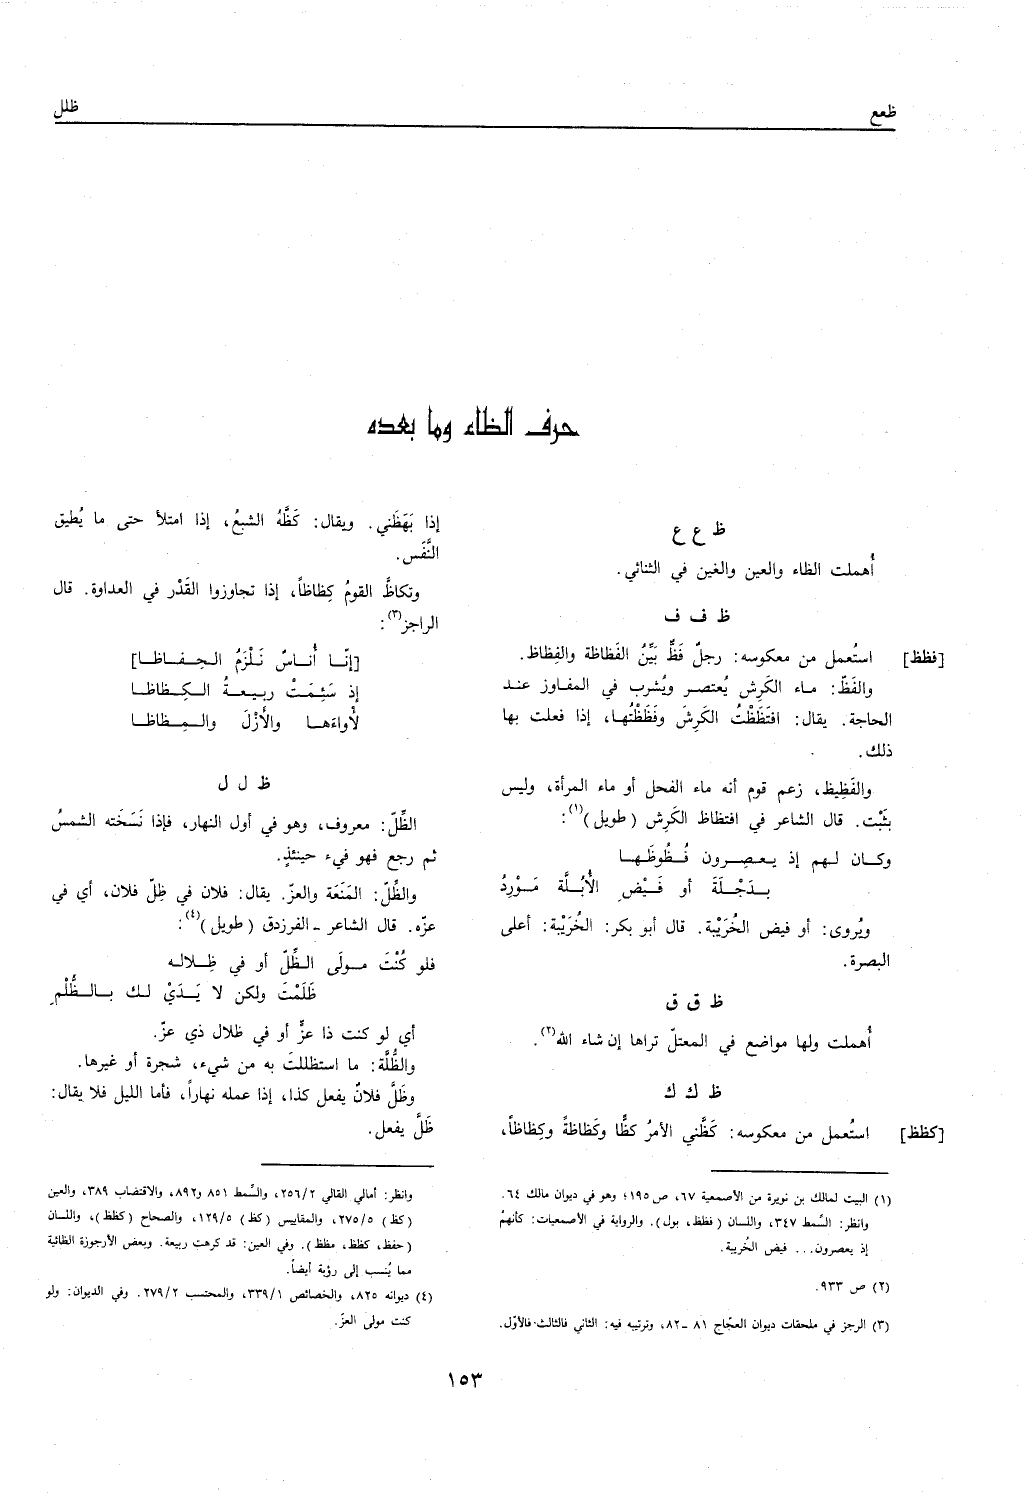 ظعع
ظلل
حرف الظاء وما بعده
ظ ع ع
أُهملت الظاء والعين والغين في الثنائي.
ظ ف ف
[فظظ] استُعمل من معكوسه: رجلٌ فَظٌّ بَيِّنُ الفَظاظة والفِظاظ.
والفَظّ: ماء الكَرِش يُعتصر ويُشرب في المفاوز عند
الحاجة. يقال: افتَظَظْتُ الكَرِشَ وفَظَظْتُها، إذا فعلت بها
ذلك.
والفَظِيظ، زعم قوم أنه ماء الفحل أو ماء المرأة، وليس
بثَبْت. قال الشاعر في افتظاظ الكَرِش (طويل)(١):
وكـان لـهم إذ يـعـصِـرون فُـظُوظَـهـا
بـدَجْـلَةَ أو فَـيْـضِ الأُبُـلَّة مَـوْرِدُ
ويُروى: أو فيض الخُرَيْبة. قال أبو بكر: الخُرَيْبة: أعلى
البصرة.
ظ ق ق
أُهملت ولها مواضع في المعتلّ تراها إن شاء الله(٢).
ظ ك ك
[كظظ] استُعمل من معكوسه: كَظَّني الأمرُ كظًّا وكَظاظةً وكِظاظاً،
إذا بَهَظَني. ويقال: كَظَّهُ الشبعُ، إذا امتلأ حتى ما يُطيق
النَّفَس.
وتكاظَّ القومُ كِظاظاً، إذا تجاوزوا القَدْر في العداوة. قال
الراجز(٣):
[إنّـا أُنـاسٌ نَـلْزَمُ الـحِـفـاظـا]
إذ سَئِمَتْ ربـيـعـةُ الـكِـظاظـا
لأواءَهـا والأَزْلَ والـمِـظاظـا
ظ ل ل
الظِّلّ: معروف، وهو في أول النهار، فإذا نَسَخَته الشمسُ
ثم رجع فهو فيء حينئذٍ.
والظِّلّ: المَنَعَة والعزّ. يقال: فلان في ظِلّ فلان، أي في
عزّه. قال الشاعر - الفرزدق (طويل)(٤):
فلو كُنْتَ مـولَى الـظِّلّ أو في ظِـلالـه
ظَلَمْتَ ولكن لا يَـدَيْ لـك بـالـظُّلْمِ
أي لو كنت ذا عزٍّ أو في ظلال ذي عزّ.
والظُّلَّة: ما استظللتَ به من شيء، شجرة أو غيرها.
وظَلَّ فلانٌ يفعل كذا، إذا عمله نهاراً، فأما الليل فلا يقال:
ظَلَّ يفعل.
(١) البيت لمالك بن نويرة من الأصمعية ٦٧، ص ١٩٥؛ وهو في ديوان مالك ٦٤.
وانظر: السِّمط ٣٤٧، واللسان (فظظ، بول). والرواية في الأصمعيات: كأنهمُ
إذ يعصرون... فيض الخُريبة.
(٢) ص ٩٣٣.
(٣) الرجز في ملحقات ديوان العجّاج ٨١ - ٨٢، وترتيبه فيه: الثاني فالثالث فالأوّل.
وانظر: أمالي القالي ٢٥٦/٢، والسِّمط ٨٥١ و٨٩٢، والاقتضاب ٣٨٩، والعين
(كظ) ٢٧٥/٥، والمقاييس (كظ) ١٢٩/٥، والصحاح (كظظ)، واللسان
(حفظ، كظظ، مظظ). وفي العين: قد كرهت ربيعة. وبعض الأرجوزة الظائية
مما يُنسب إلى رؤبة أيضاً.
(٤) ديوانه ٨٢٥، والخصائص ٣٣٩/١، والمحتسب ٢٧٩/٢. وفي الديوان: ولو
كنت مولى العزّ.
١٥٣